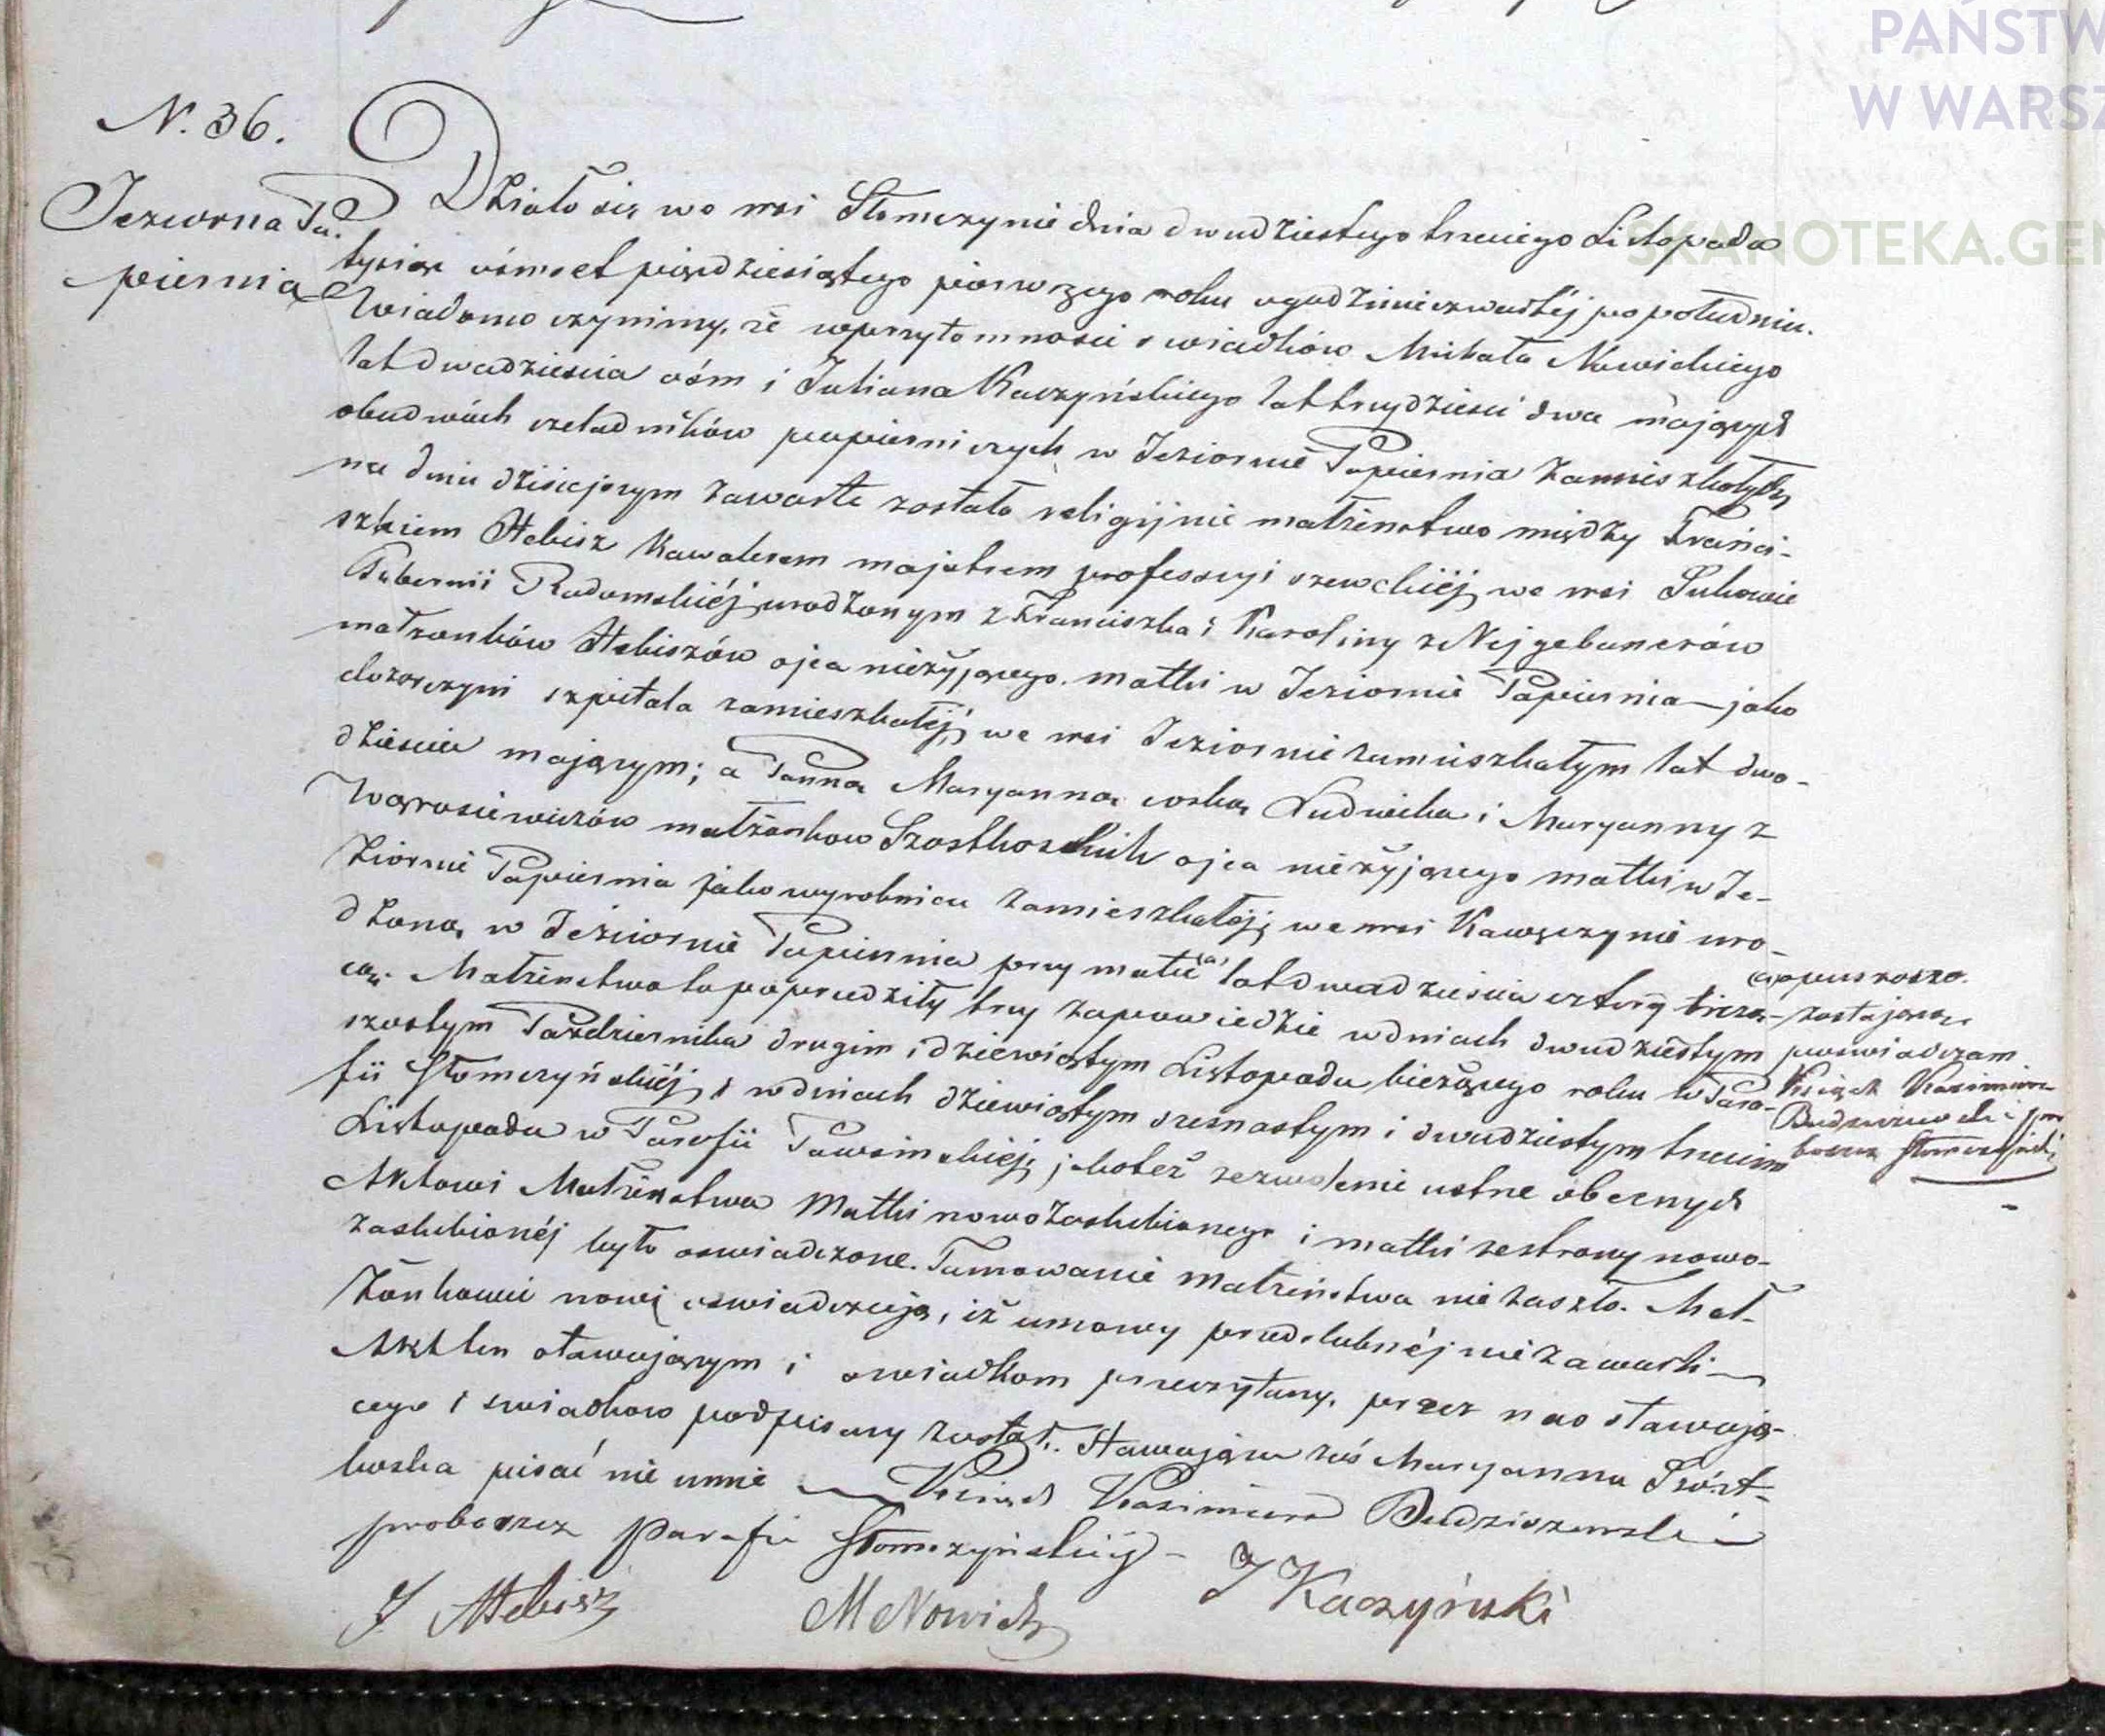 PAŃSTW
W WARSZ
SKANOTEKA.GEN
N. 36.
Jeziorna Pa-
piernia
Działo się we wsi Słomczynie dnia dwudziestego trzeciego Listopada
tysiąc ośmset pięćdziesiątego pierwszego roku o godzinie czwartéj po południu.
Wiadomo czynimy, że w przytomności świadków Michała Nowickiego
lat dwadzieścia ośm i Juliana Kaczyńskiego lat trzydzieści dwa mających
obudwóch czeladników papierniczych w Jeziornie Papiernia zamieszkałych,
na dniu dzisiejszym zawarte zostało religijnie małżeństwo między Franci-
szkiem Hebisz Kawalerem majstrem professyi szewckiéj, we wsi Sukowie
Gubernii Radomskiéj urodzonym z Franciszka i Karoliny z Nejgebauerów
małżonków Hebiszów ojca nieżyjącego matki w Jeziornie Papiernia – jako
dozorczyni szpitala zamieszkałéj, we wsi Jeziornie zamieszkałym lat dwa-
dzieścia mającym; a Panną Maryanną córką Ludwika i Maryanny z
Wąrosiewiczów małżonków Szostkoskich ojca nieżyjącego matki w Je-
ziornie Papiernia jako wyrobnica zamieszkałéj, we wsi Kawęczynie uro-
dzoną, w Jeziornie Papiernia przy matce (a) lat dwadzieścia cztery liczą-
cą. Małżeństwo to poprzedziły trzy zapowiedzie w dniach dwudziestym
szóstym Październiku drugim i dziewiątym Listopadu bieżącego roku w Para-
fii Słomczyńskiéj, i w dniach dziewiątym szesnastym i dwudziestym trzecim
Listopadu w Parafii Pawsińskiéj, jakoteż zezwolenie ustne obecnych
Aktowi Małżeństwa Matki nowozaślubionego i matki ze strony nowo-
zaślubionéj było oświadczone. Tamowanie Małżeństwa nie zaszło. Mał-
żonkowie nowi oświadczają, iż umowy przedślubnéj nie zawarli –
Akt ten stawającym i świadkom przeczytany, przez nas stawają-
cego i świadków podpisany został. Stawająca zaś Maryanna Szóst-
koska pisać nie umie Ksiądz Kazimierz Budziszewski
proboszcz Parafii Słomczyńskiéj –
(a) opuszczo.
zostającą
poświadczam
Ksiądz Kazimierz
Budziszewski pro
boszcz Słomczyński
F Hebisz
M Nowicki
J Kaczyński